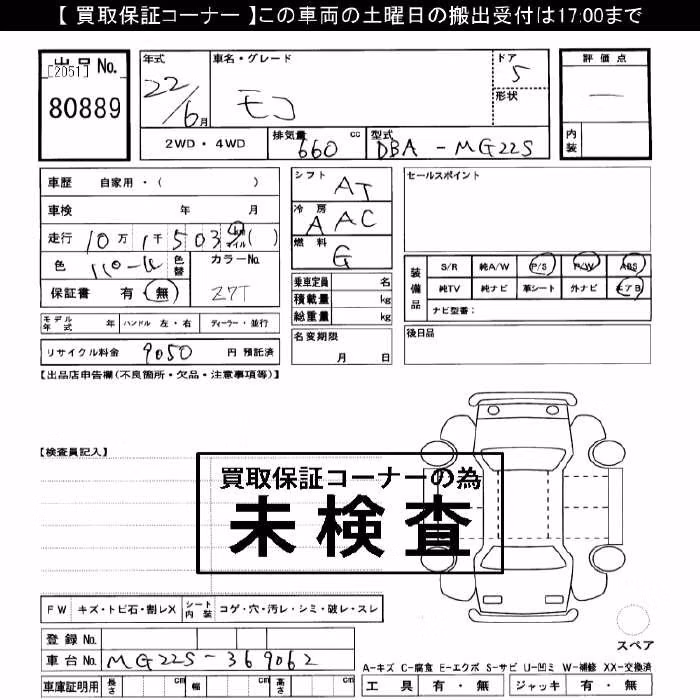 【 買取保証コーナー 】この車両の土曜日の搬出受付は17:00まで
出品 No.
[2051]
80889
年式
22/6月
車名・グレード
モコ
ドア
5
形状
評価点
―
内装
2WD・4WD
排気量 660 cc
型式 DBA - MG22S
車歴 自家用・( )
車検 年 月
走行 10万1千503 km マイル ( )
色
色替
カラーNo.
Z7T
保証書 有 無
シフト AT
冷房 AAC
燃料 G
乗車定員 名
積載量 kg
総重量 kg
セールスポイント
装備品
S/R 純A/W P/S P/W ABS
純TV 純ナビ 革シート 外ナビ エアB
ナビ型番:
モデル年式 年 ハンドル 左・右 ディーラー・並行
名変期限
月 日
後日品
リサイクル料金 9050 円 預託済
【出品店申告欄(不良箇所・欠品・注意事項等)】
【検査員記入】
買取保証コーナーの為
未検査
FW キズ・トビ石・割レX シート内装 コゲ・穴・汚レ・シミ・破レ・スレ
スペア
登録 No.
車台 No. MG22S-369062
A-キズ C-腐食 E-エクボ S-サビ U-凹ミ W-補修 XX-交換済
車庫証明用 長さ cm 幅 cm 高さ cm
工具 有・無 ジャッキ 有・無